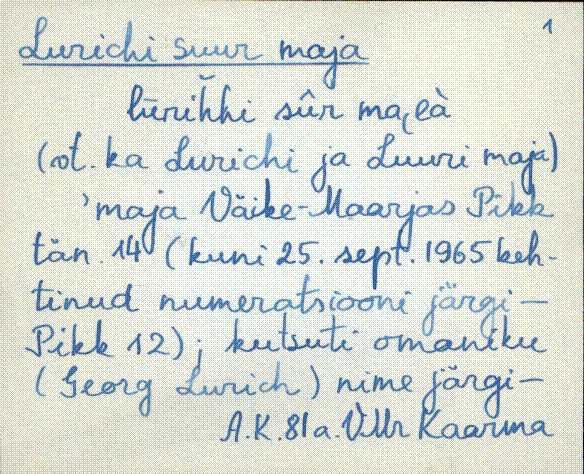 1
Lurichi suur maja
lūrih̆hi sûr ma(eà
(vt. ka Lurichi ja Luuri maja)
'maja Väike-Maarjas Pikk
tän. 14 (kuni 25. sept. 1965 keh-
tinud numeratsiooni järgi —
Pikk 12); kutsuti omaniku
(Georg Lurich) nime järgi —
A.K. 81 a. VMr Kaarma